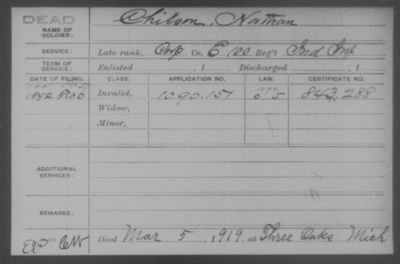 DEAD
NAME OF SOLDIER: Chilson, Nathan
SERVICE: Late rank, Corp Co. E, 100 Reg't Ind Inf
TERM OF SERVICE: Enlisted , 1 Discharged , 1
DATE OF FILING. CLASS. APPLICATION NO. LAW. CERTIFICATE NO.
1892 Invalid, 1090.157 843,288
Widow,
Minor,
ADDITIONAL SERVICES:
REMARKS:
Died Mar 5, 1919, at Three Oaks Mich